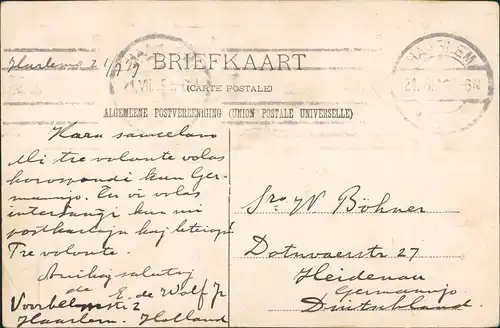 Haarlem 21/7 19
HAARLEM
BRIEFKAART
(CARTE POSTALE)
ALGEMEENE POSTVEREENIGING (UNION POSTALE UNIVERSELLE)
Kara samcelano
Mi tre volonte volas
korespondi kun Ger-
manujo. Ĉu vi volas
interŝanĝi kun mi
postkartojn kaj leterojn
Tre volonte.
Amikaj salutoj
de E. de Wolf Jr
2
Haarlem. Holland
Sro W Böhner
27
Heidenau
Germanujo
Duitschland.